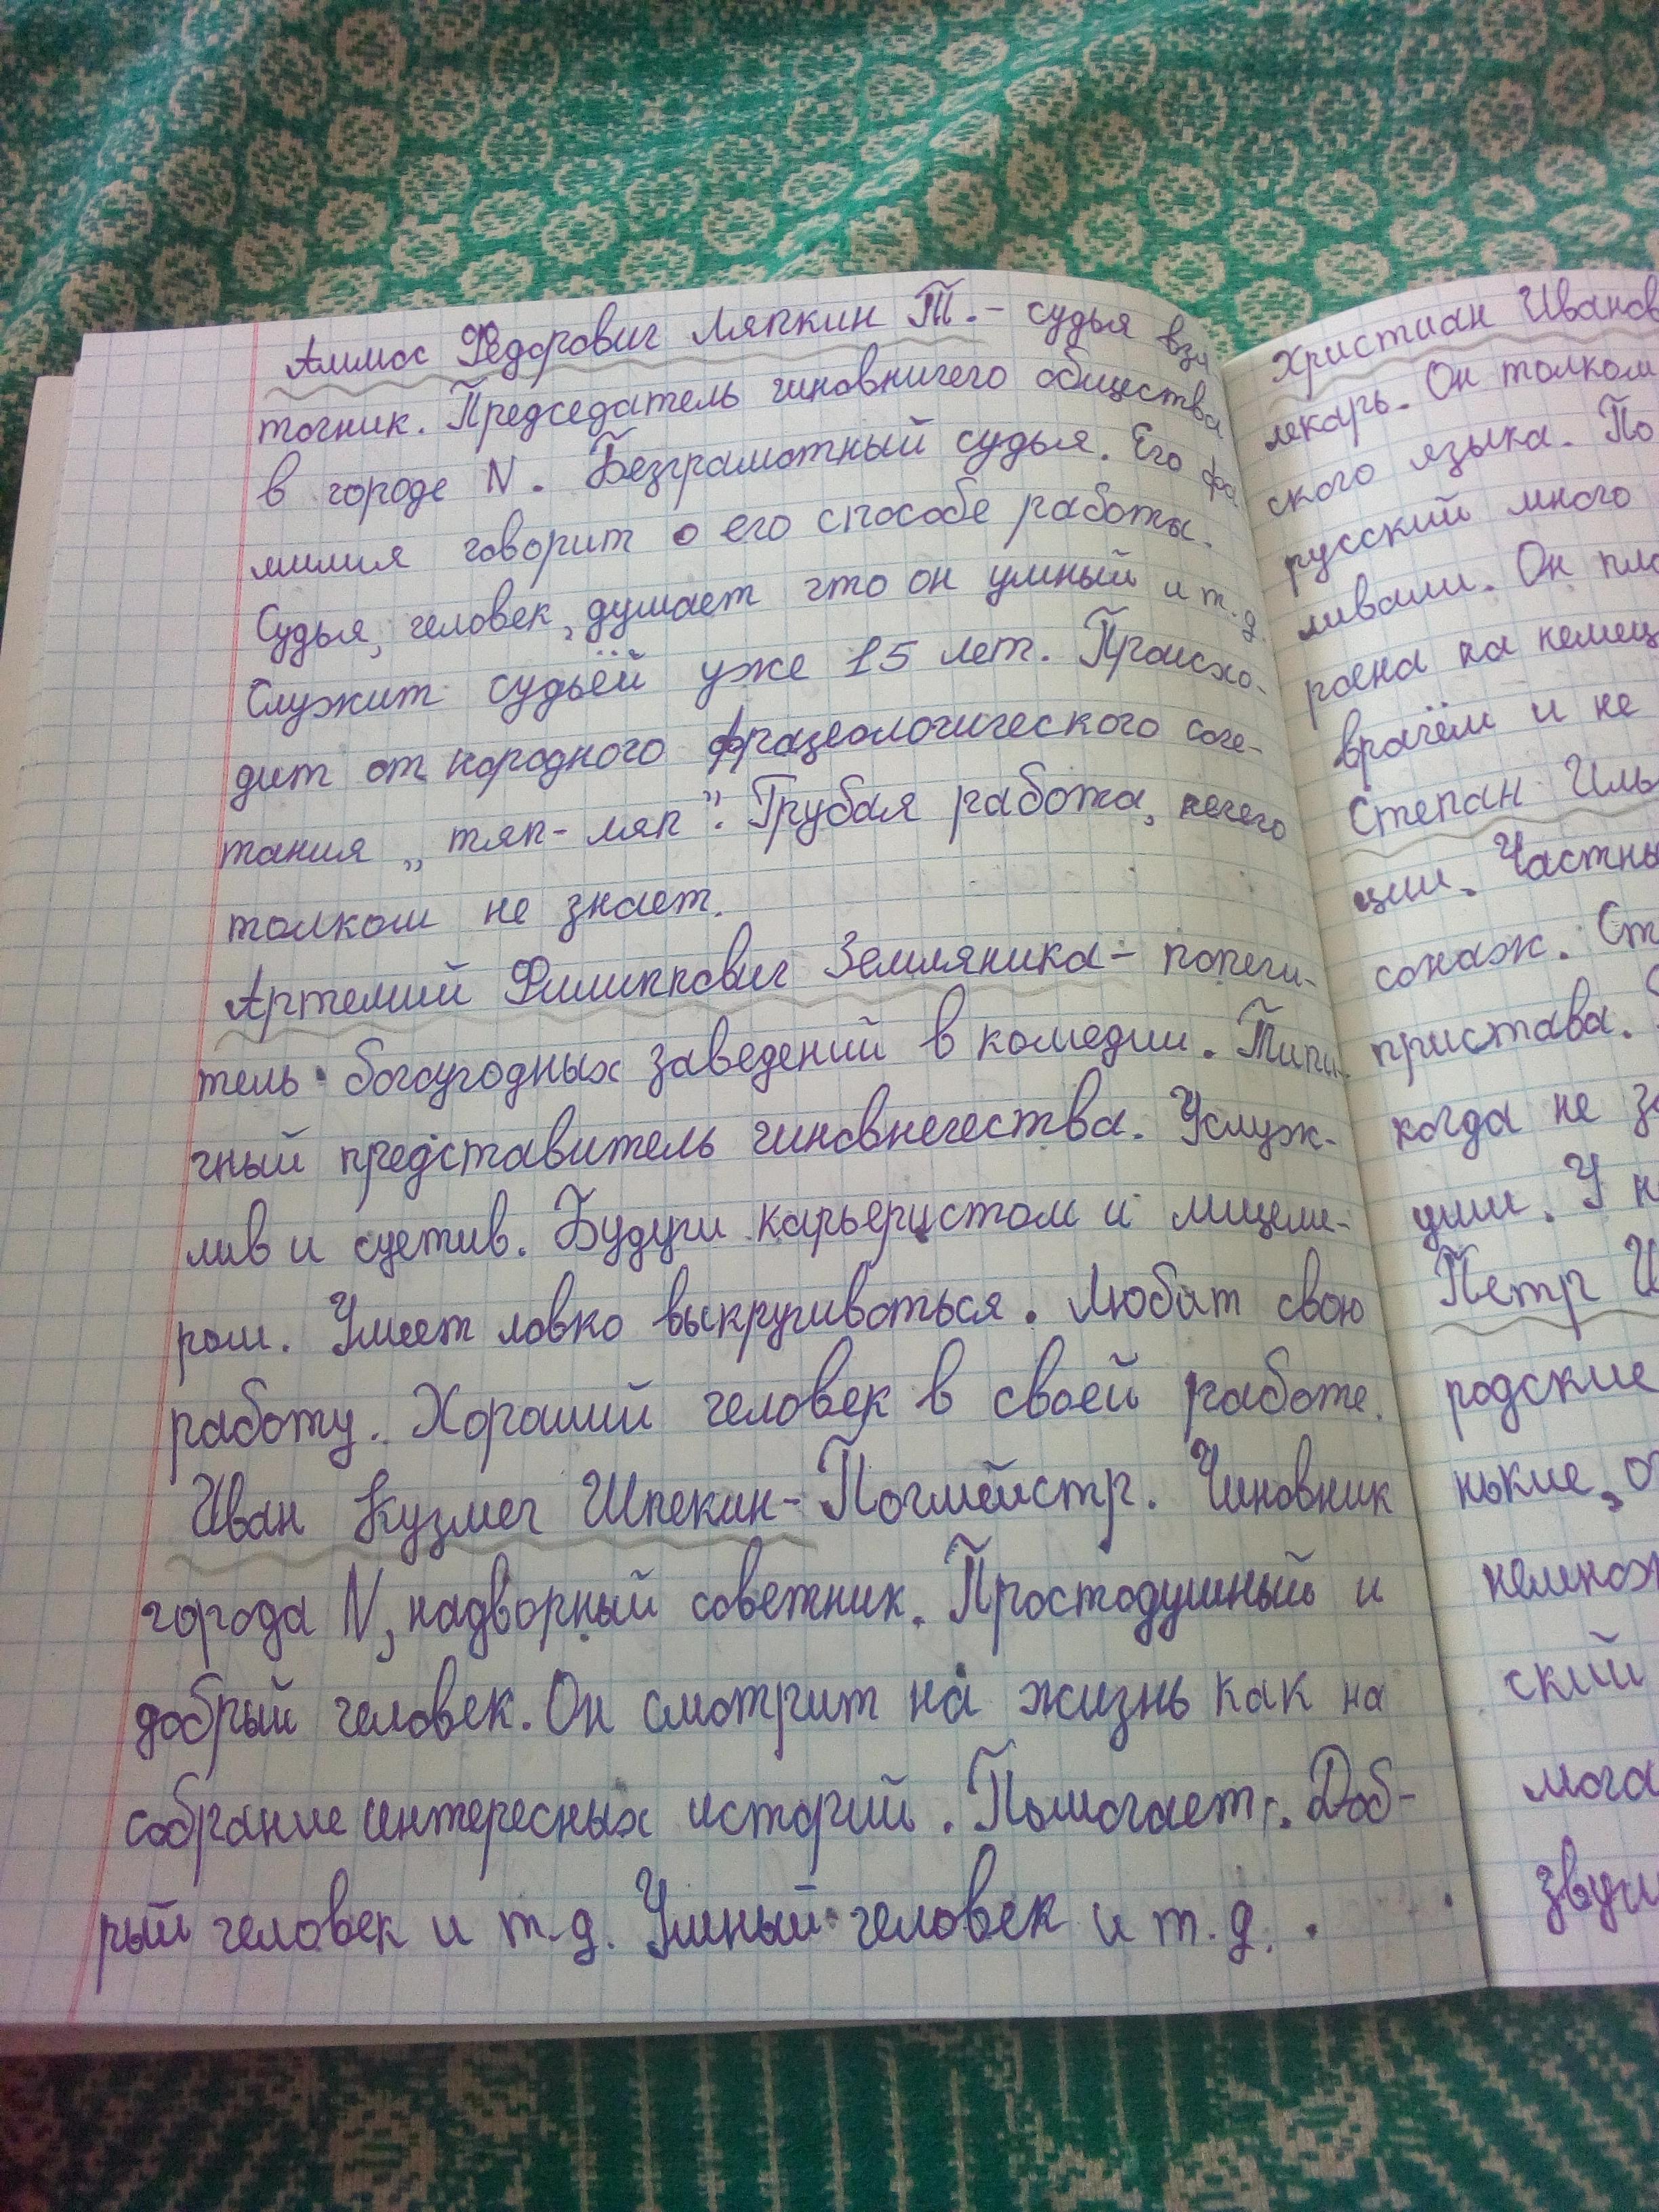 Аммос Фёдорович Ляпкин Т. - судья взя
точник. Председатель чиновничего общества
в городе N. Безграмотный судья. Его фа
милия говорит о его способе работы.
Судья, человек, думает что он умный и т.д
Служит судьёй уже 15 лет. Происхо-
дит от народного фразеологического соче-
тания „тяп-ляп". Грубая работа, нечего
толком не знает.
Артемий Филиппович Земляника - попечи-
тель богоугодных заведений в комедии. Типи-
чный представитель чиновнечества. Услуж-
лив и суетив. Будучи карьеристом и лицеме-
ром. Умеет ловко выкручиваться. Любит свою
работу. Хороший человек в своей работе.
Иван Кузмеч Шпекин - Почмейстр. Чиновник
города N, надворный советник. Простодушный и
добрый человек. Он смотрит на жизнь как на
собрание интересных историй. Помогает. Доб-
рый человек и т.д. Умный человек и т.д.
Христиан Иванов
лекарь. Он толком
ского языка. По
русский много
ливали. Он пло
рена на немец
врачём и не
Степан Иль
ции. Частны
сонаж. Ст
пристава.
когда не за
дии. У н
Петр И
родские
нькие, о
немнож
ский
мога
звуч